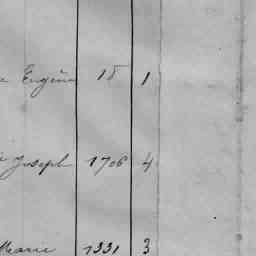 Eugène 15 1
Joseph 1706 4
Marie 1331 3